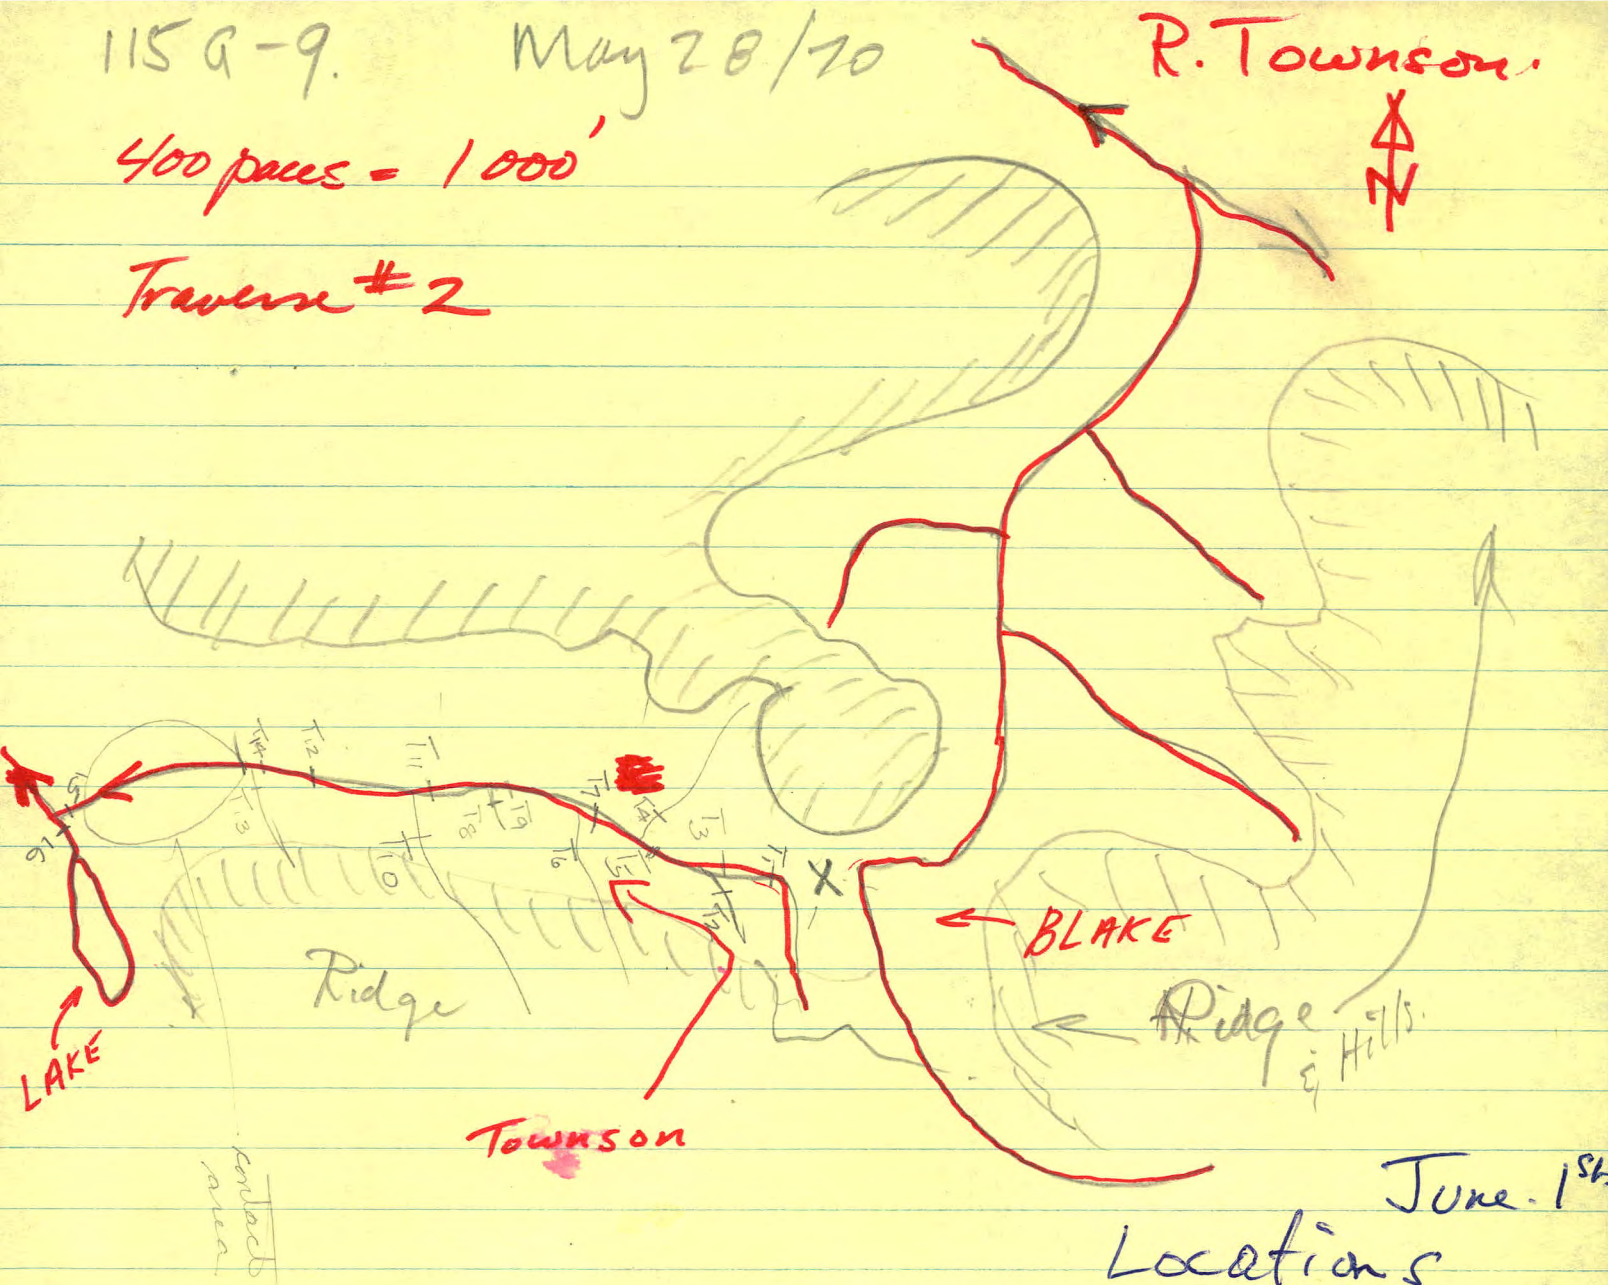 115 G-9. May 28/70
R. Townson.
400 paces = 1000'
N
Traverse #2
T14
T12
T11
T7
T4
T3
T1
T13
T8
T9
T10
T6
T5
T2
15
16
X
BLAKE
Ridge
Ridge
& Hills.
LAKE
Townson
contact
area
June. 1st
Locations